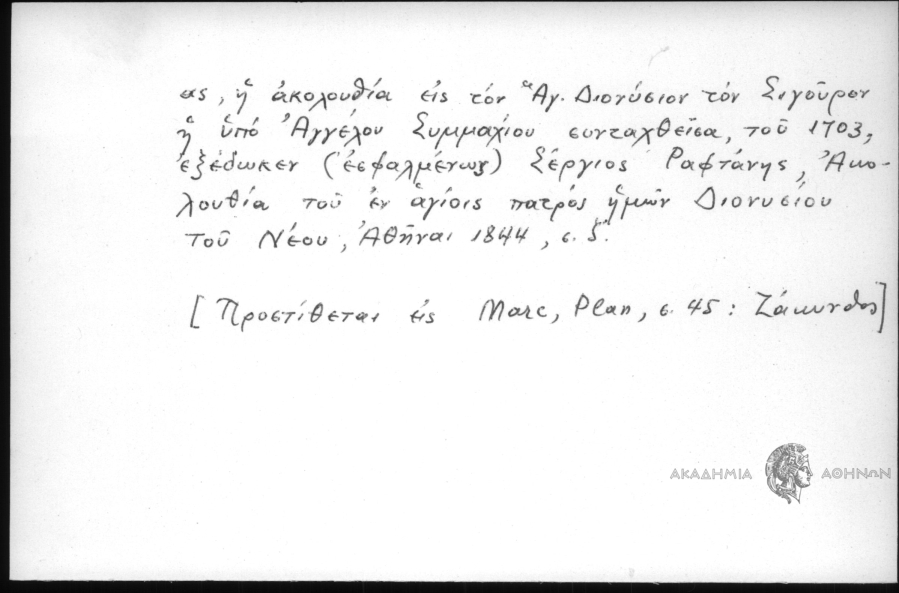 ας, ἡ ἀκολουθία εἰς τόν Ἅγ. Διονύσιον τόν Σιγοῦρον
ἡ ὑπό Ἀγγέλου Συμμαχίου συνταχθεῖσα, τοῦ 1703,
ἐξέδωκεν (ἐσφαλμένως) Σέργιος Ραφτάνης, Ἀκο-
λουθία τοῦ ἐν ἁγίοις πατρός ἡμῶν Διονυσίου
τοῦ Νέου, Ἀθῆναι 1844, σ. ζ΄.
[Προστίθεται εἰς Marc, Plan, σ. 45: Ζάκυνθος]
ΑΚΑΔΗΜΙΑ ΑΘΗΝΩΝ